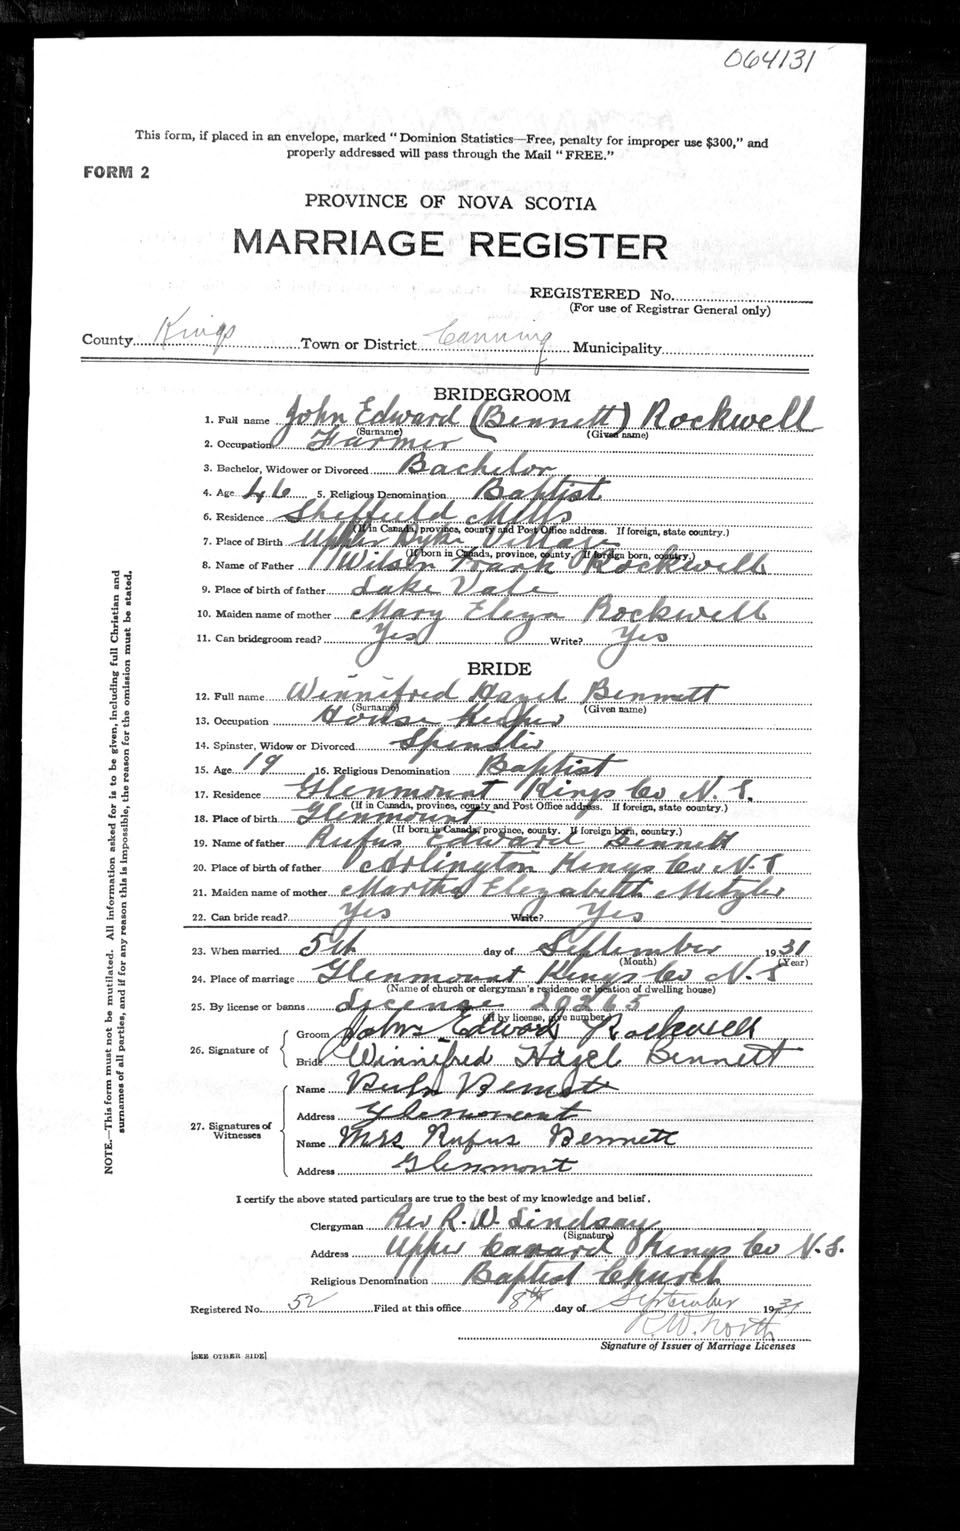 064131
This form, if placed in an envelope, marked "Dominion Statistics—Free, penalty for improper use $300," and
properly addressed will pass through the Mail "FREE."
FORM 2
PROVINCE OF NOVA SCOTIA
MARRIAGE REGISTER
REGISTERED No.
(For use of Registrar General only)
County Kings Town or District Canning Municipality
BRIDEGROOM
1. Full name John Edward (Bennett) Rockwell
(Surname) (Given name)
2. Occupation Farmer
3. Bachelor, Widower or Divorced Bachelor
4. Age 46 5. Religious Denomination Baptist
6. Residence Sheffield Mills
(If in Canada, province, county and Post Office address. If foreign, state country.)
7. Place of Birth Upper Dyke Village
(If born in Canada, province, county. If foreign born, country.)
8. Name of Father Wilson Frank Rockwell
9. Place of birth of father Lake Vale
10. Maiden name of mother Mary Rockwell
11. Can bridegroom read? Yes Write? Yes
BRIDE
12. Full name Winnifred Hazel Bennett
(Surname) (Given name)
13. Occupation House Keeper
14. Spinster, Widow or Divorced Spinster
15. Age 19 16. Religious Denomination Baptist
17. Residence Glenmount Kings Co N.S.
(If in Canada, province, county and Post Office address. If foreign, state country.)
18. Place of birth Glenmount
(If born in Canada, province, county. If foreign born, country.)
19. Name of father Rufus Edward Bennett
20. Place of birth of father Arlington Kings Co N.S
21. Maiden name of mother Martha Elizabeth Metzler
22. Can bride read? Yes Write? Yes
23. When married 5th day of September 1931
(Month) (Year)
24. Place of marriage Glenmount Kings Co N.S
(Name of church or clergyman's residence or location of dwelling house)
25. By license or banns License 20265
(If by license, give number)
26. Signature of
Groom John Edward Rockwell
Bride Winnifred Hazel Bennett
27. Signatures of Witnesses
Name
Address Glenmount
Name Mrs Rufus Bennett
Address Glenmont
I certify the above stated particulars are true to the best of my knowledge and belief.
Clergyman Rev R. W. Lindsay
(Signature)
Address Upper Canard Kings Co N.S.
Religious Denomination Baptist Church
Registered No. 52 Filed at this office 8th day of September 1931
R.W. North
Signature of Issuer of Marriage Licenses
[SEE OTHER SIDE]
NOTE.—This form must not be mutilated. All information asked for is to be given, including full Christian and
surnames of all parties, and if for any reason this is impossible, the reason for the omission must be stated.